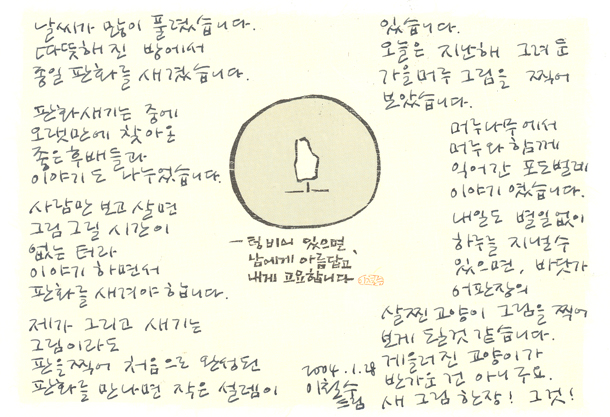 날씨가 많이 풀렸습니다.
따뜻해진 방에서
종일 판화를 새겼습니다.
판화새기는 중에
오랫만에 찾아온
좋은후배들과
이야기도 나누었습니다.
사람만 보고 살면
그림그릴 시간이
없는 터라
이야기하면서
판화를 새겨야합니다.
제가 그리고 새기는
그림이라도
판을찍어 처음으로 완성된
판화를 만나면 작은 설렘이
ㅡ텅비어 있으면,
남에게 아름답고,
내게 고요합니다
2004.1.28
이철수
드림
있습니다.
오늘은 지난해 그려둔
가을머루 그림을 찍어
보았습니다.
머루나무에서
머루와 함께
익어간 포도벌레
이야기였습니다.
내일도 별일없이
하루를 지낼수
있으면, 바닷가
어판장의
살찐고양이 그림을 찍어
보게 될것 같습니다.
게을러진 고양이가
반가운건 아니구요.
새 그림한장! 그것!